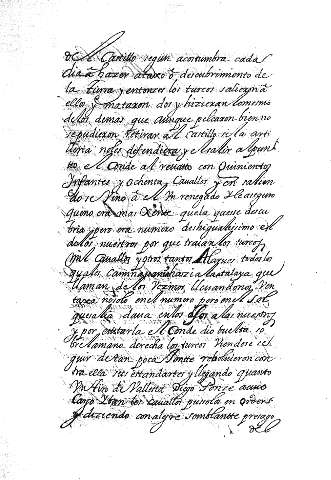 del Castillo segun acostumbra cada
dia à hazer atajo o descubrimiento de
la tierra y entonces los turcos salieron à
ello, y mataron dos y hizieran lo mesmo
de los demas que aunque pelearon bien no
se pudieron retirar al Castillo si la arti
lleria no les defendiera y el salir a lo pun
to el Conde al rebato con Quinientos
Infantes y ochenta Cavallos y en salien
do se vino à el un renegado y le aseguro
que no era mas gente que la que se descu
bria pero era numero desigualisimo el
de los nuestros por que traian los turcos
mil Cavallos y otros tantos
y a los Camina Atalaya que
llaman de los Vezinos llevandonos Ven
taxa no solo en el numero pero en el sol
que salia dava en los ojos a los nuestros
y por evitarla el Conde dio buelta so
bre la mano derecha los turcos viendose se
guir de tan poca gente rebolvieron con
tra ella tres estandartes y llegando quanto
un tiro de Vallesta Diego Ponse a cuio
Cargo iban los cavallos pusola en orden
y diziendo con alegre semblante presago
del